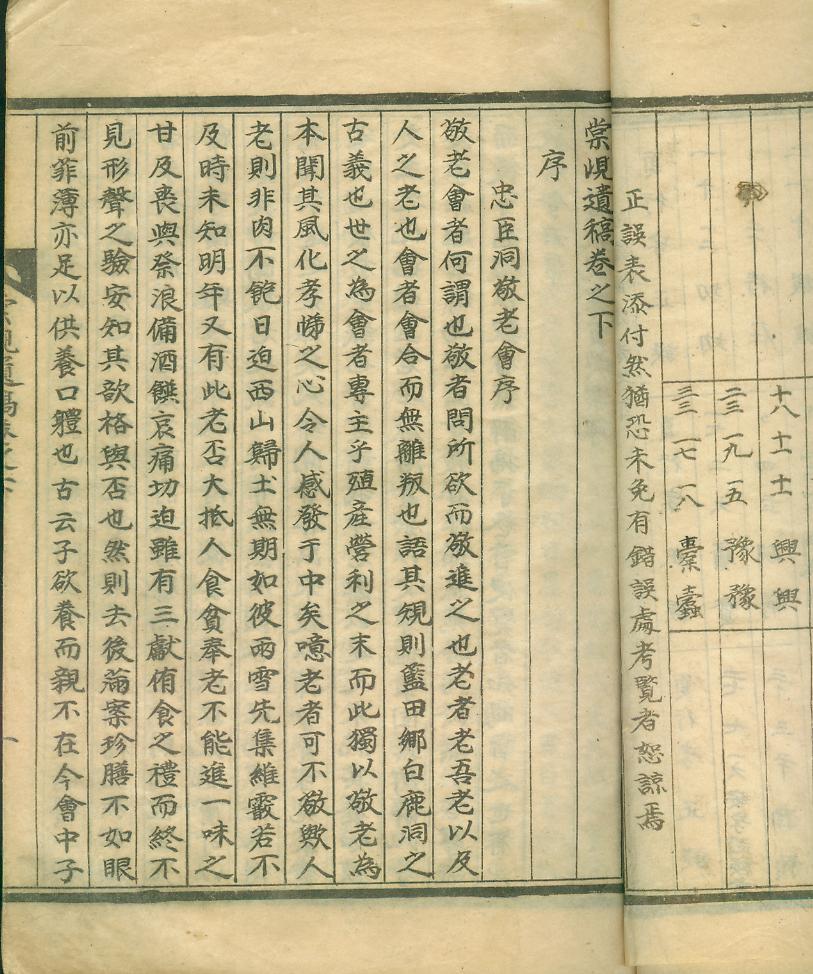 十八 十一 十一 興 興
二三 一九 一五 豫 豫
三三 一七 一八 橐 蠹
正誤表添付然猶恐未免有錯誤處考覽者恕諒焉
棠峴遺稿卷之下
序
忠臣洞敬老會序
敬老會者何謂也敬者問所欲而敬進之也老者老吾老以及
人之老也會者會合而無離叛也語其規則藍田鄉白鹿洞之
古義也世之為會者專主乎殖產營利之末而此獨以敬老為
本聞其風化孝悌之心令人感發于中矣噫老者可不敬歟人
老則非肉不飽日迫西山歸土無期如彼雨雪先集維霰若不
及時未知明年又有此老否大抵人食貧奉老不能進一味之
甘及喪與祭浪備酒饌哀痛切迫雖有三獻侑食之禮而終不
見形聲之驗安知其歆格與否也然則去後蒲案珍膳不如眼
前菲薄亦足以供養口體也古云子欲養而親不在今會中子